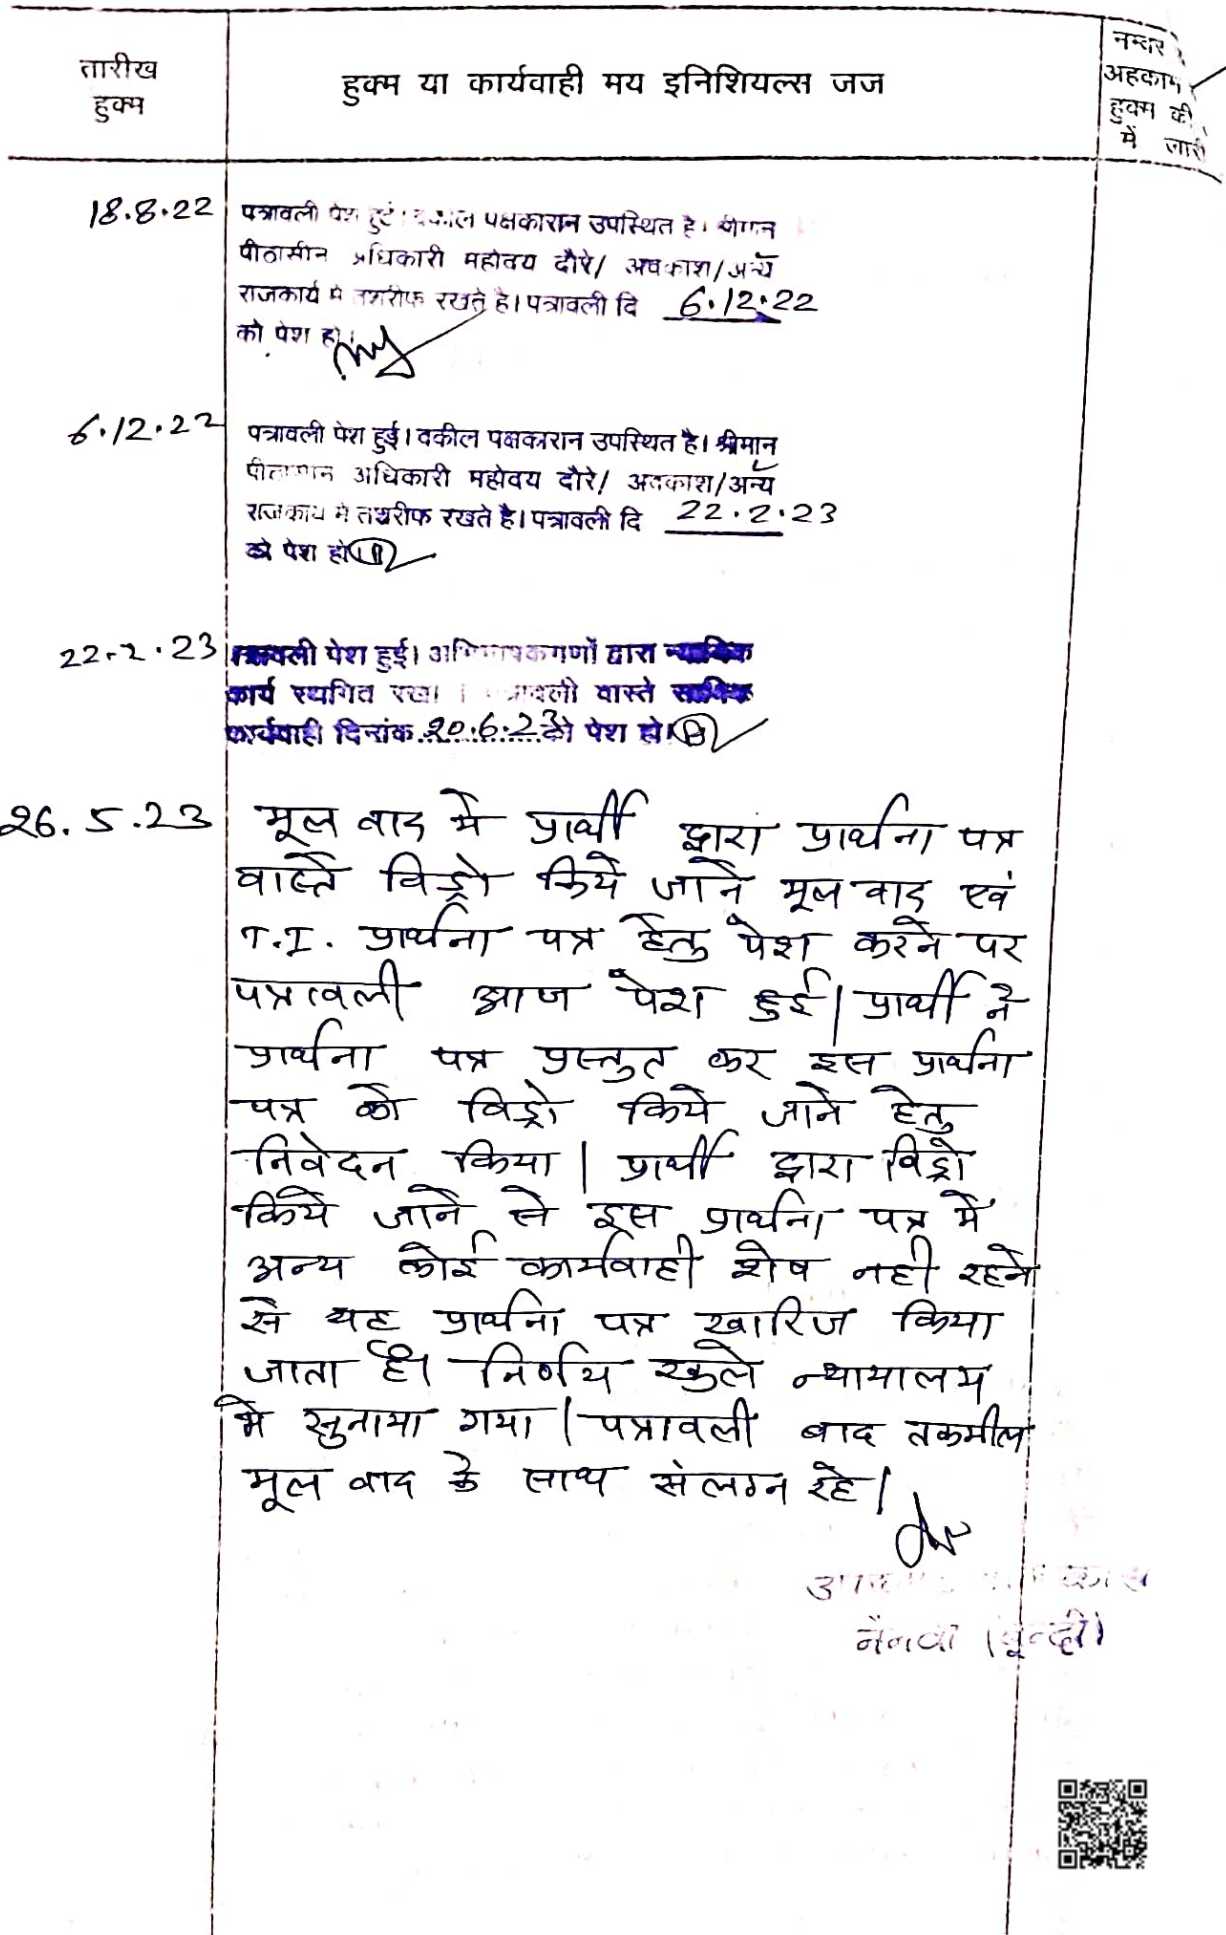 तारीख
हुक्म
हुक्म या कार्यवाही मय इनिशियल्स जज
नम्बर
अहकाम
हुक्म की
में जारी
18.8.22
पत्रावली पेश हुई। वकील पक्षकारान उपस्थित है। श्रीमान
पीठासीन अधिकारी महोदय दौरे/ अवकाश/अन्य
राजकार्य में तशरीफ रखते है। पत्रावली दि 6.12.22
को पेश हो।
6.12.22
पत्रावली पेश हुई। वकील पक्षकारान उपस्थित है। श्रीमान
पीठासीन अधिकारी महोदय दौरे/ अवकाश/अन्य
राजकार्य में तशरीफ रखते है। पत्रावली दि 22.2.23
को पेश हो
22.2.23
पत्रावली पेश हुई। अभिभाषकगणों द्वारा न्यायिक
कार्य स्थगित रखा। पत्रावली वास्ते साबिक
कार्यवाही दिनांक 20.6.23 को पेश हो।
26.5.23
मूल वाद में प्रार्थी द्वारा प्रार्थना पत्र
वास्ते विड्रो किये जाने मूल वाद एवं
T.I. प्रार्थना पत्र हेतु पेश करने पर
पत्रावली आज पेश हुई। प्रार्थी ने
प्रार्थना पत्र प्रस्तुत कर इस प्रार्थना
पत्र को विड्रो किये जाने हेतु
निवेदन किया। प्रार्थी द्वारा विड्रो
किये जाने से इस प्रार्थना पत्र में
अन्य कोई कार्यवाही शेष नही रहने
से यह प्रार्थना पत्र खारिज किया
जाता है। निर्णय खुले न्यायालय
में सुनाया गया। पत्रावली बाद तकमील
मूल वाद के साथ संलग्न रहे।
नैनवा (बून्दी)